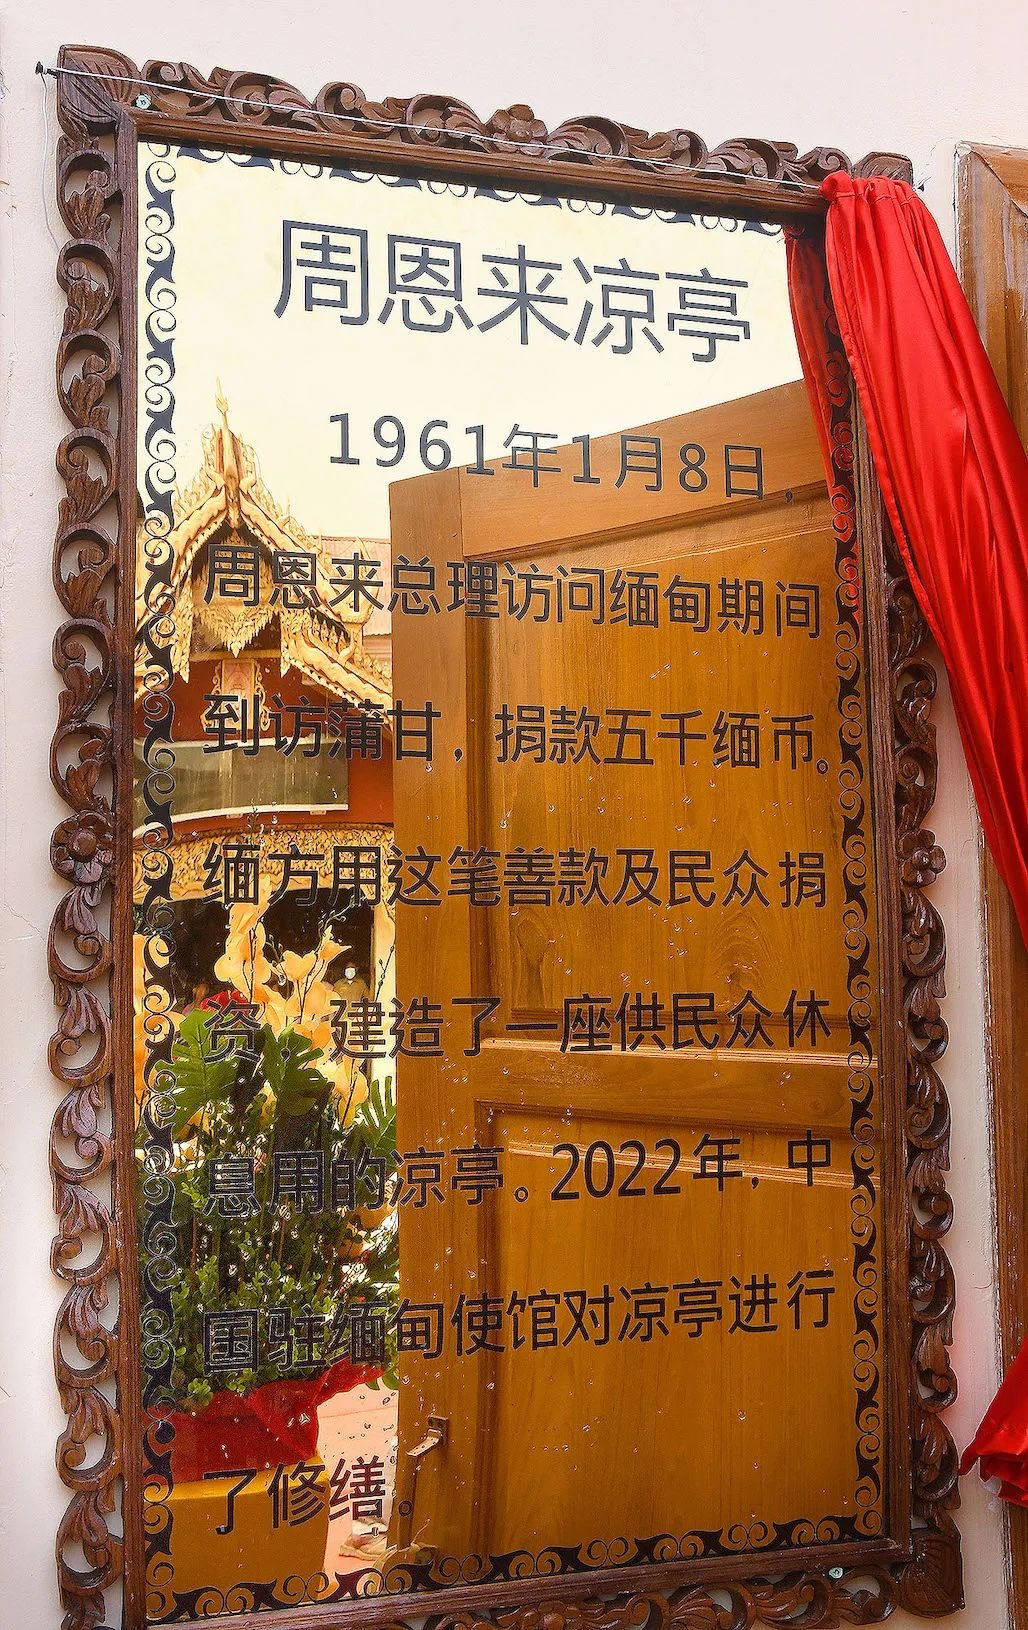 周恩来凉亭
1961年1月8日，
周恩来总理访问缅甸期间
到访蒲甘，捐款五千缅币。
缅方用这笔善款及民众捐
资，建造了一座供民众休
息用的凉亭。2022年，中
国驻缅甸使馆对凉亭进行
了修缮。